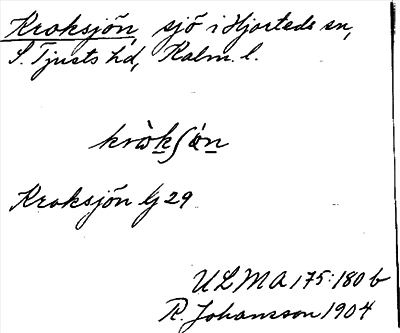 Kroksjön, sjö i Hjorteds sn,
S. Tjusts hd, Kalm. l.
kròkʃö̀n
Kroksjön Gj 29
ULMA 175:180 b
R. Johansson 1904